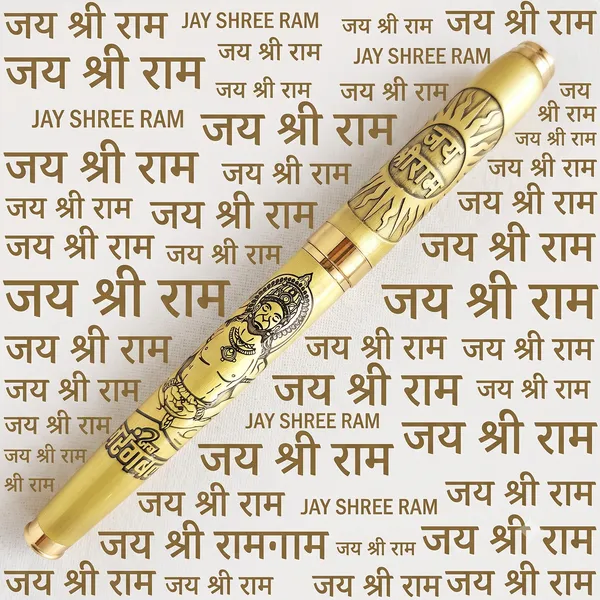 जय श्री राम JAY SHREE RAM जय श्री राम जय श्री राम
जय श्री राम जय श्री राम JAY SHREE RAM
जय श्री राम जय श्री राम जय
JAY SHREE RAM जय श्री राम श्री राम
जय श्री राम
जय श्री राम जय श्री राम जय श्री राम
जय श्री राम जय श्री राम जय श्री राम
जय श्री राम जय श्री राम जय श्री राम
जय श्री राम जय श्री राम
जय श्री राम जय श्री राम जय श्री राम
जय श्री राम जय श्री राम जय श्री राम
जय श्री राम JAY SHREE RAM जय श्री राम
जय श्री राम जय श्री राम
श्री राम
जय श्री राम JAY SHREE RAM जय श्री राम
जय श्री रामºगाम जय श्री राम जय श्री राम
जय श्री राम जय श्री राम जय श्री राम जय श्री राम
जय
श्रीराम